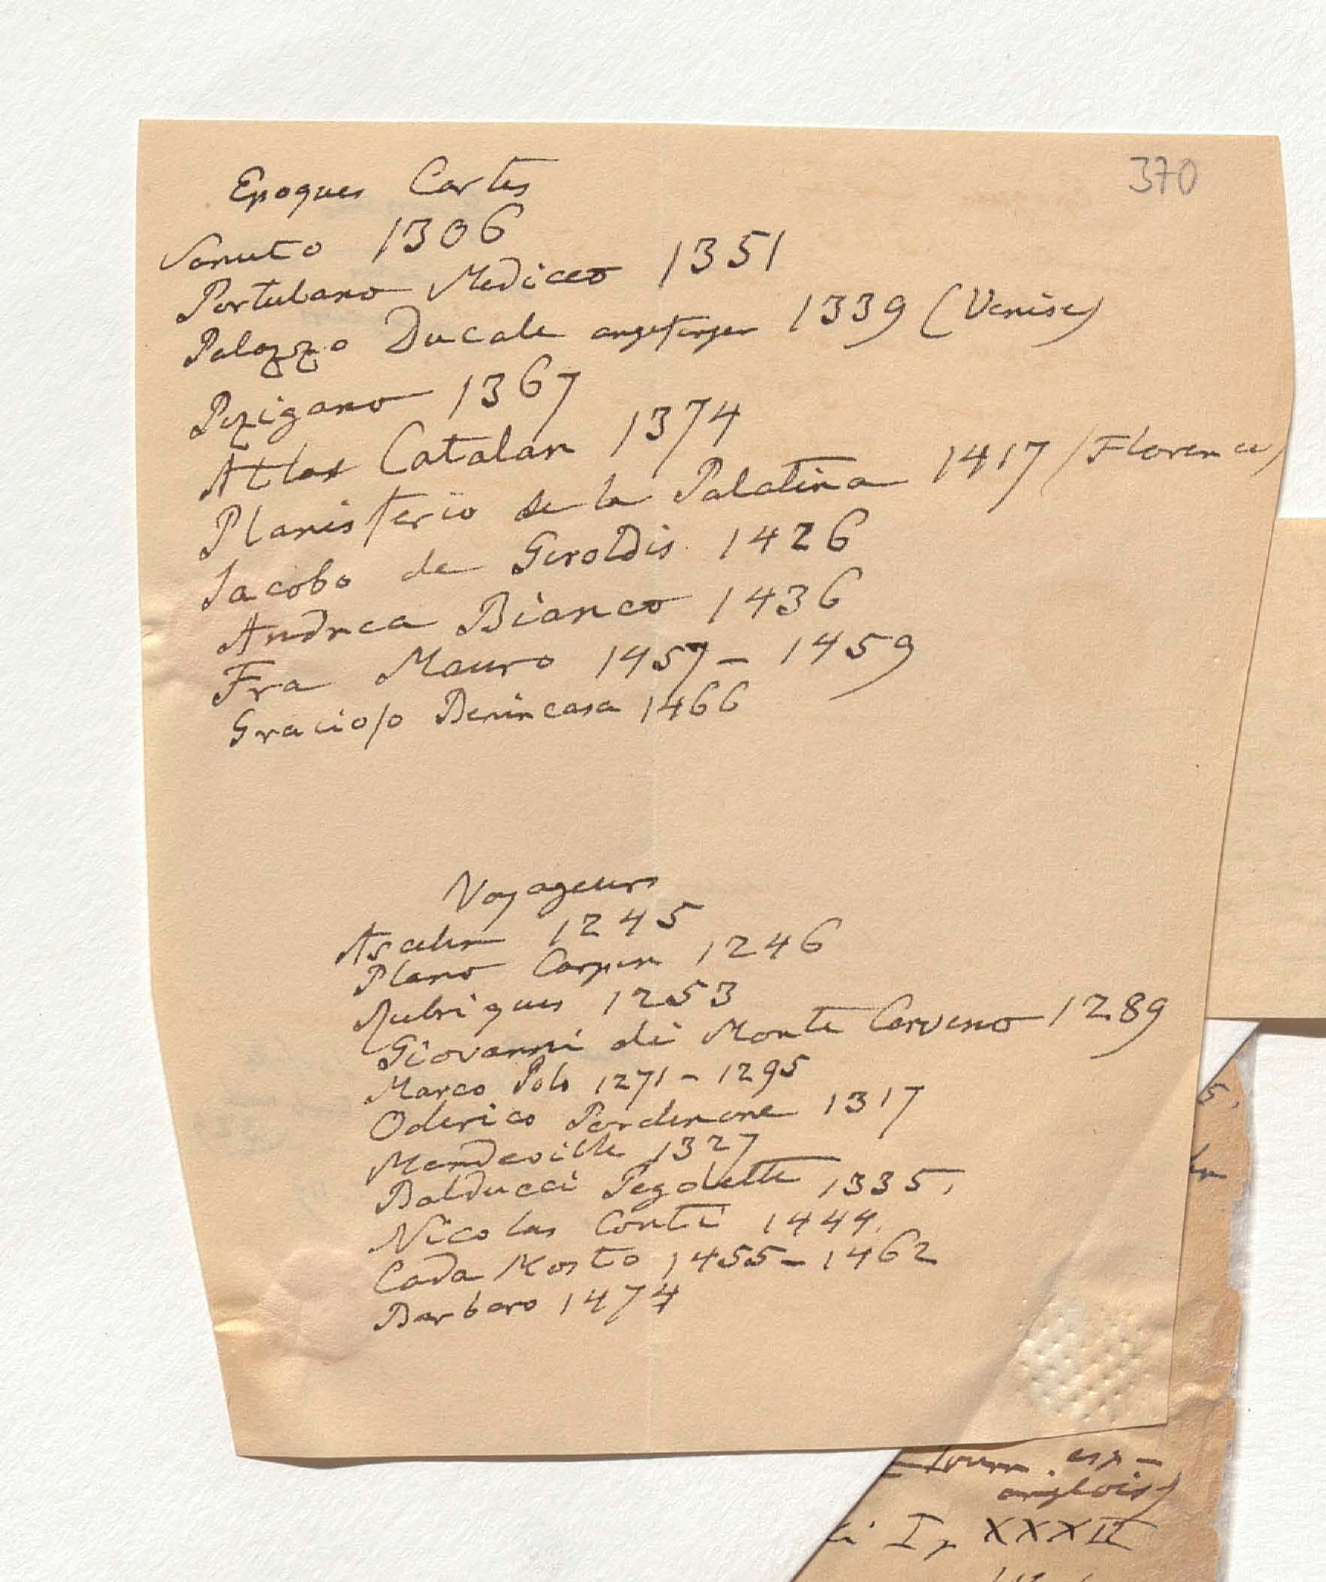 370
Epoques Cartes
Sanuto 1306
Portulano Mediceo 1351
Palazzo Ducale angefangen 1339 (Venise)
Pizigano 1367
Atlas Catalan 1374
Planisferio de la Palatina 1417 (Florence)
Jacobo de Giroldis 1426
Andrea Bianco 1436
Fra Mauro 1457 – 1459
Gracioso Benincasa 1466
Voyageurs
Ascelin 1245
Plano Carpin 1246
Rubriques 1253
Giovanni di Monte Corvino 1289
Marco Polo 1271 – 1295
Oderico Pordenone 1317
Mandeville 1327
Balducci Pegoletti 1335.
Nicolas Conti 1444.
Cada Mosto 1455 – 1462
Barbaro 1474
5.
Journ. esp–
anglois)
I, XXXII